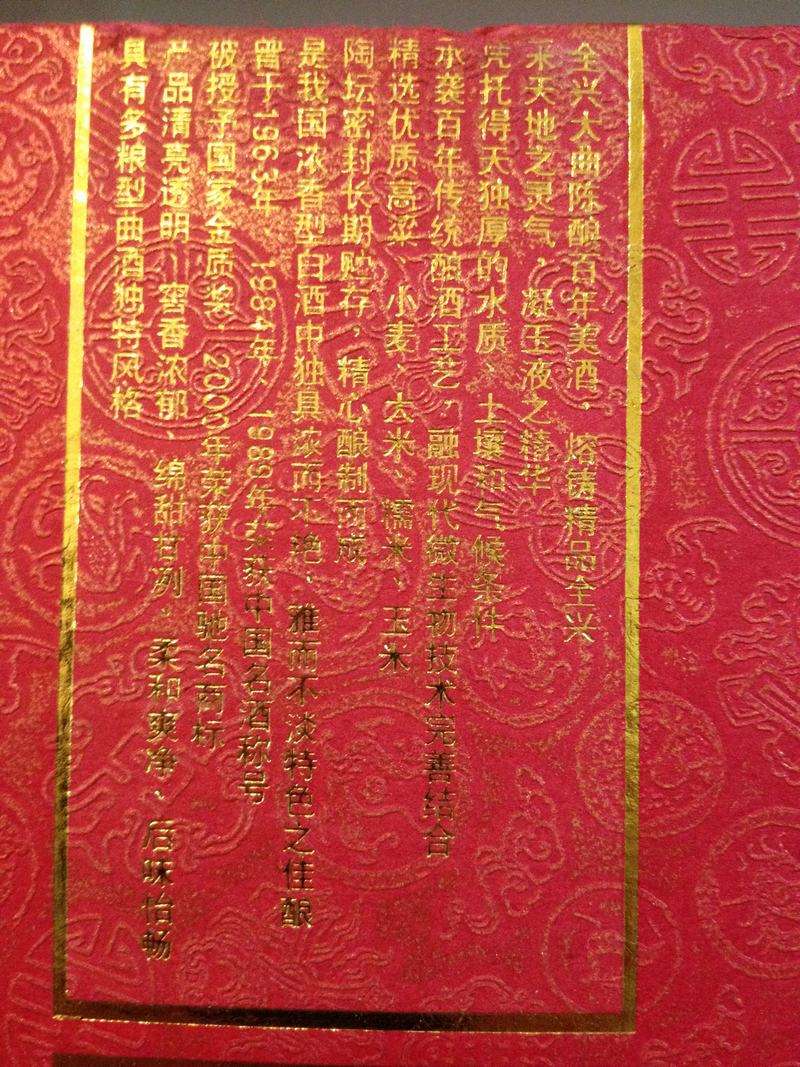 全兴大曲陈酿百年美酒，熔铸精品全兴
采天地之灵气，凝玉液之精华
凭托得天独厚的水质、土壤和气候条件
承袭百年传统酿酒工艺，融现代微生物技术完善结合
精选优质高粱、小麦、大米、糯米、玉米
陶坛密封长期贮存，精心酿制而成
是我国浓香型白酒中独具浓而不艳、雅而不淡特色之佳酿
曾于1963年、1984年、1989年荣获中国名酒称号
被授予国家金质奖，2000年荣获中国驰名商标
产品清亮透明、窖香浓郁、绵甜甘冽、柔和爽净、后味怡畅
具有多粮型曲酒独特风格